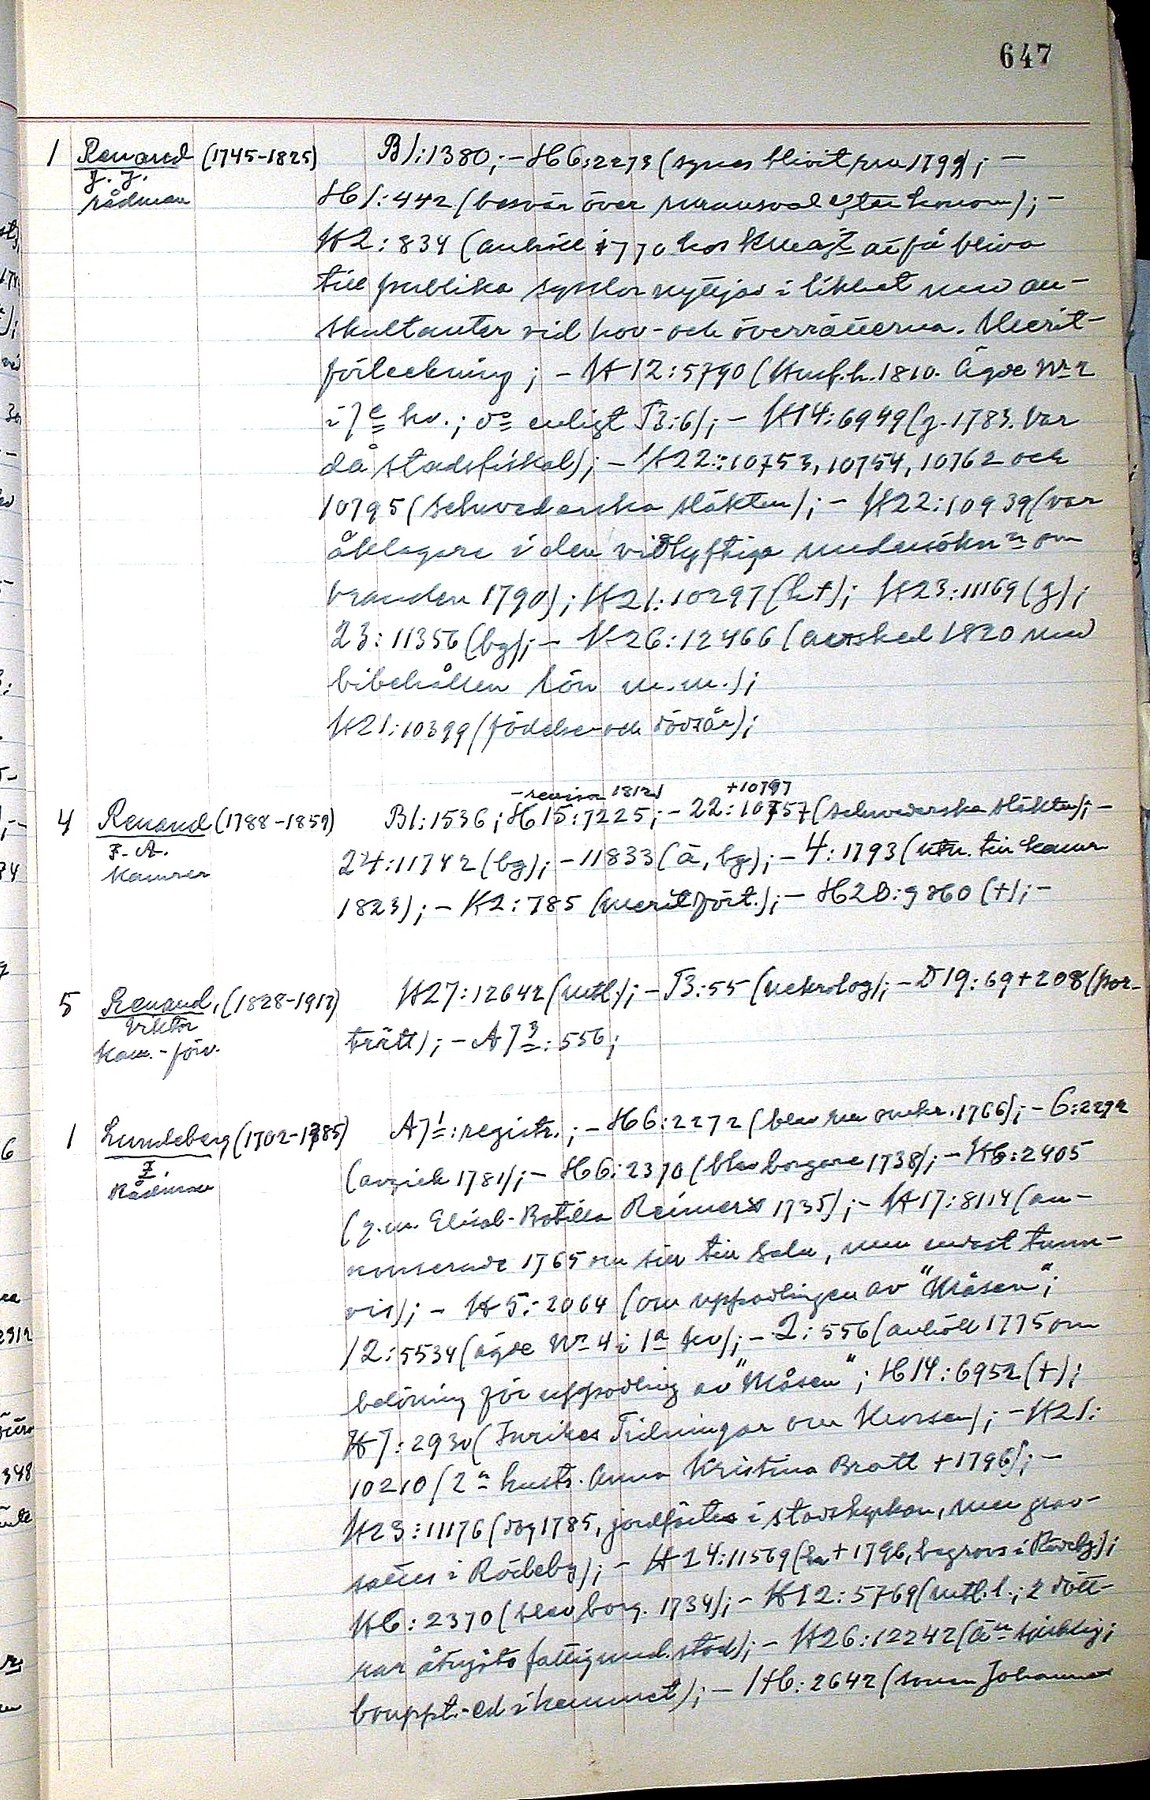 647
1 Renaud (1745-1825) B1:1380; - H6:2273 (synes blivit rm 1799); -
J. J. H1:442 (besvär över rmansval efter honom); -
rådman H2:834 (anhöll 1770 hos Kmajt att få bliva
till publika sysslor nyttjad i likhet med au-
skultanter vid hov- och överrätterna. Merit-
förteckning; - H12:5790 (Husf.h. 1810. Ägde No 2
i 7e kv.; do enligt B:6); - H14:6949 (g. 1783. Var
då stadsfiskal); - H22:10753, 10754, 10762 och
10795 (Schwederska släkten); - H22:10939 (var
åklagare i den vidlyftiga undersökn:n om
branden 1790); H21:10297 (h+); H23:11169 (g);
23:11356 (bg); - H26:12466 (avsked 1820 med
bibehållen lön m.m.);
H21:10399 (födelse- och dödsår);
- revisor 1812) +10797
4 Renaud (1788-1859) B1:1536; H15:7225; - 22:10757 (Schwederska släkten); -
F. A. 24:11742 (bg); - 11833 (ä, bg); - 4:1793 (utn. till kamr
Kamrer 1823); - K2:785 (meritfört.); - H20:9860 (+); -
5 Renaud, (1828-1913) H27:12642 (mtl.); - B:55 (nekrolog); - D19:69+208 (por-
Viktor trätt); - A73:556;
Kam.-förv.
1 Lundeberg (1702-1785) A71: registr.; - H6:2272 (blev rm omkr. 1766); - 6:2292
I. (avgick 1781); - H6:2370 (blev borgare 1738); - H6:2405
Rådman (g.m. Elisab. Botilla Reimers 1735); - H17:8114 (an-
nonserade 1765 om sill till salu, men endast tunn-
vis); - H5:2064 (om uppodlingen av "Måsen";
12:5534 (ägde No 4 i 1a kv); - 2:556 (anhöll 1775 om
belöning för uppodling av "Måsen"; H14:6952 (+);
H7:2930 (Inrikes Tidningar om Mossen); - H21:
10210 (2a hustr. Anna Kristina Bratt +1796); -
H23:11176 (dog 1785, jordfästes i stadskyrkan, men grav-
sattes i Rödeby); - H24:11569 (h+1796, begravs i Rödeby);
H6:2370 (blev borg. 1734); - H12:5769 (mtl. l.; 2 dött-
rar åtnjöto fattigund.stöd); - H26:12242 (än sjuklig;
bouppt.-ed i hemmet); - H6:2642 (sonen Johannes